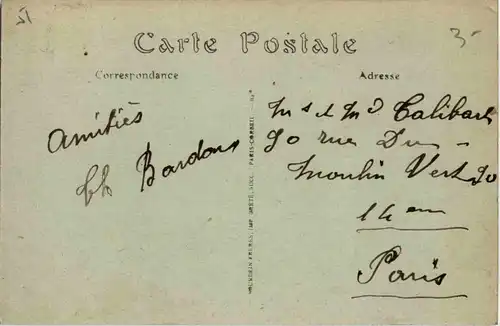 Carte Postale
Correspondance
Adresse
Amitiés
Ch Bardons
Calibard
90 rue Du
Moulin Vert 90
14 eme
Paris